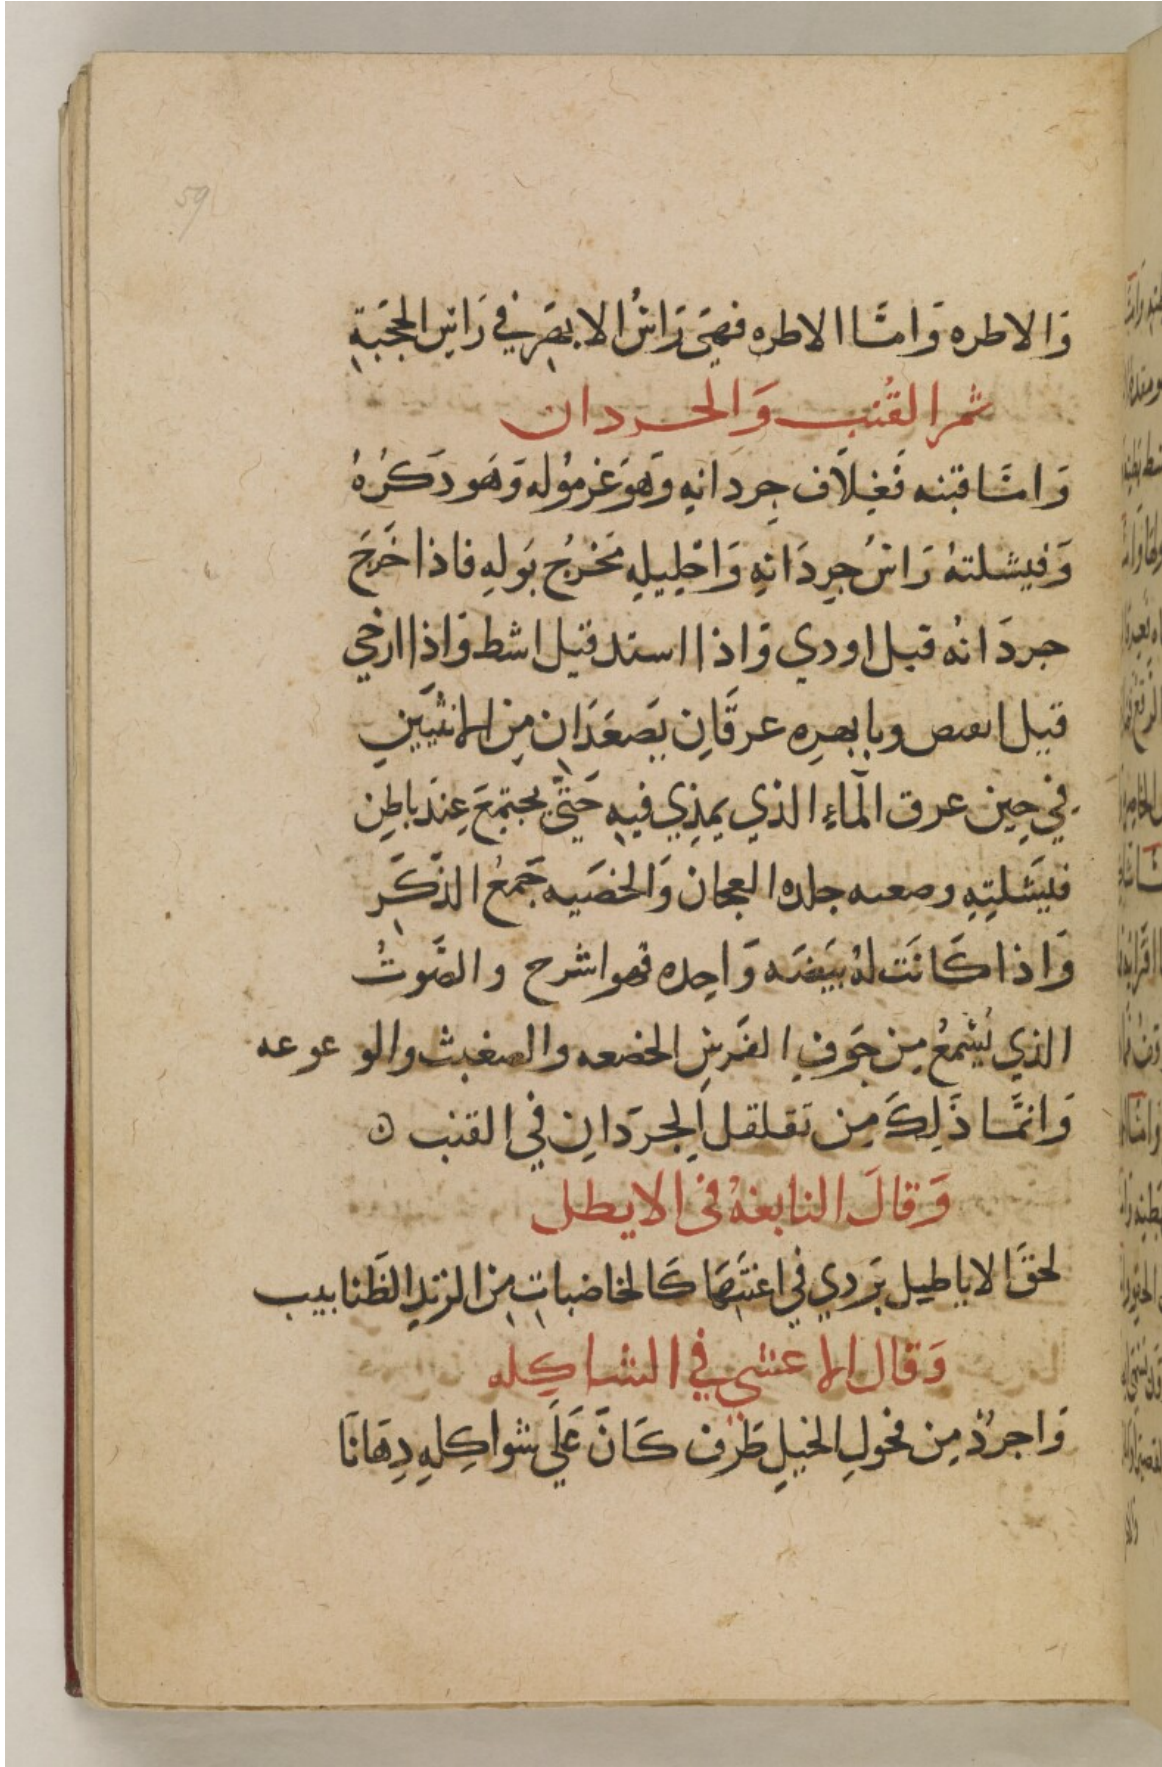 59
وَالاطره وَامّا الاطره فهيَ رَاسُ الابهَرِ في رَاسِ الحجَبَةِ
ثمر القُنب وَالجردان
وَامّا قنبه فَغِلَاف جردانِهِ وَهوَ غرمُوله وَهَو ذَكَرُهُ
وَفيشلتهُ رَاسُ جِردَانهِ وَاحْلِيلِهِ مَخرجُ بَولِهِ فاذا خَرَجَ
جردَانُه قيل اودي وَاذا اشتد قيل اشط وَاذا ارخي
قيل وبابهرِه عرقَانِ يَصعَدَانِ مِنَ الانثيَينِ
في حِين عرق المآءِ الذي يمذِي فيهِ حَتَّى يجتمعَ عِندَ باطِنِ
فيشَلتِهِ جلده العجان وَالخصَيه جَمعُ الذَّكَرِ
وَاذا كَانَت لهُ بَيضَه وَاحِده فهو اشرح والصَّوتُ
الذي يُسْمَعُ مِن جَوفِ الفَرسِ الخضعه والوعوعه
وَانمَّا ذَلِكَ مِن تقلقل الجردَانِ في القنب ه
وَقالَ النابغهُ في الايطل
لحقَ الاياطيل تَردي في اعنتهَا كَالخاضباتِ مِنَ الزندِ الظَنابيب
وَقال الاعشي في الشاكِله
وَاجردُ مِن فحولِ الخيلِ طَرْف كَانَّ عَلَى شواكِلهِ دِهَانَا